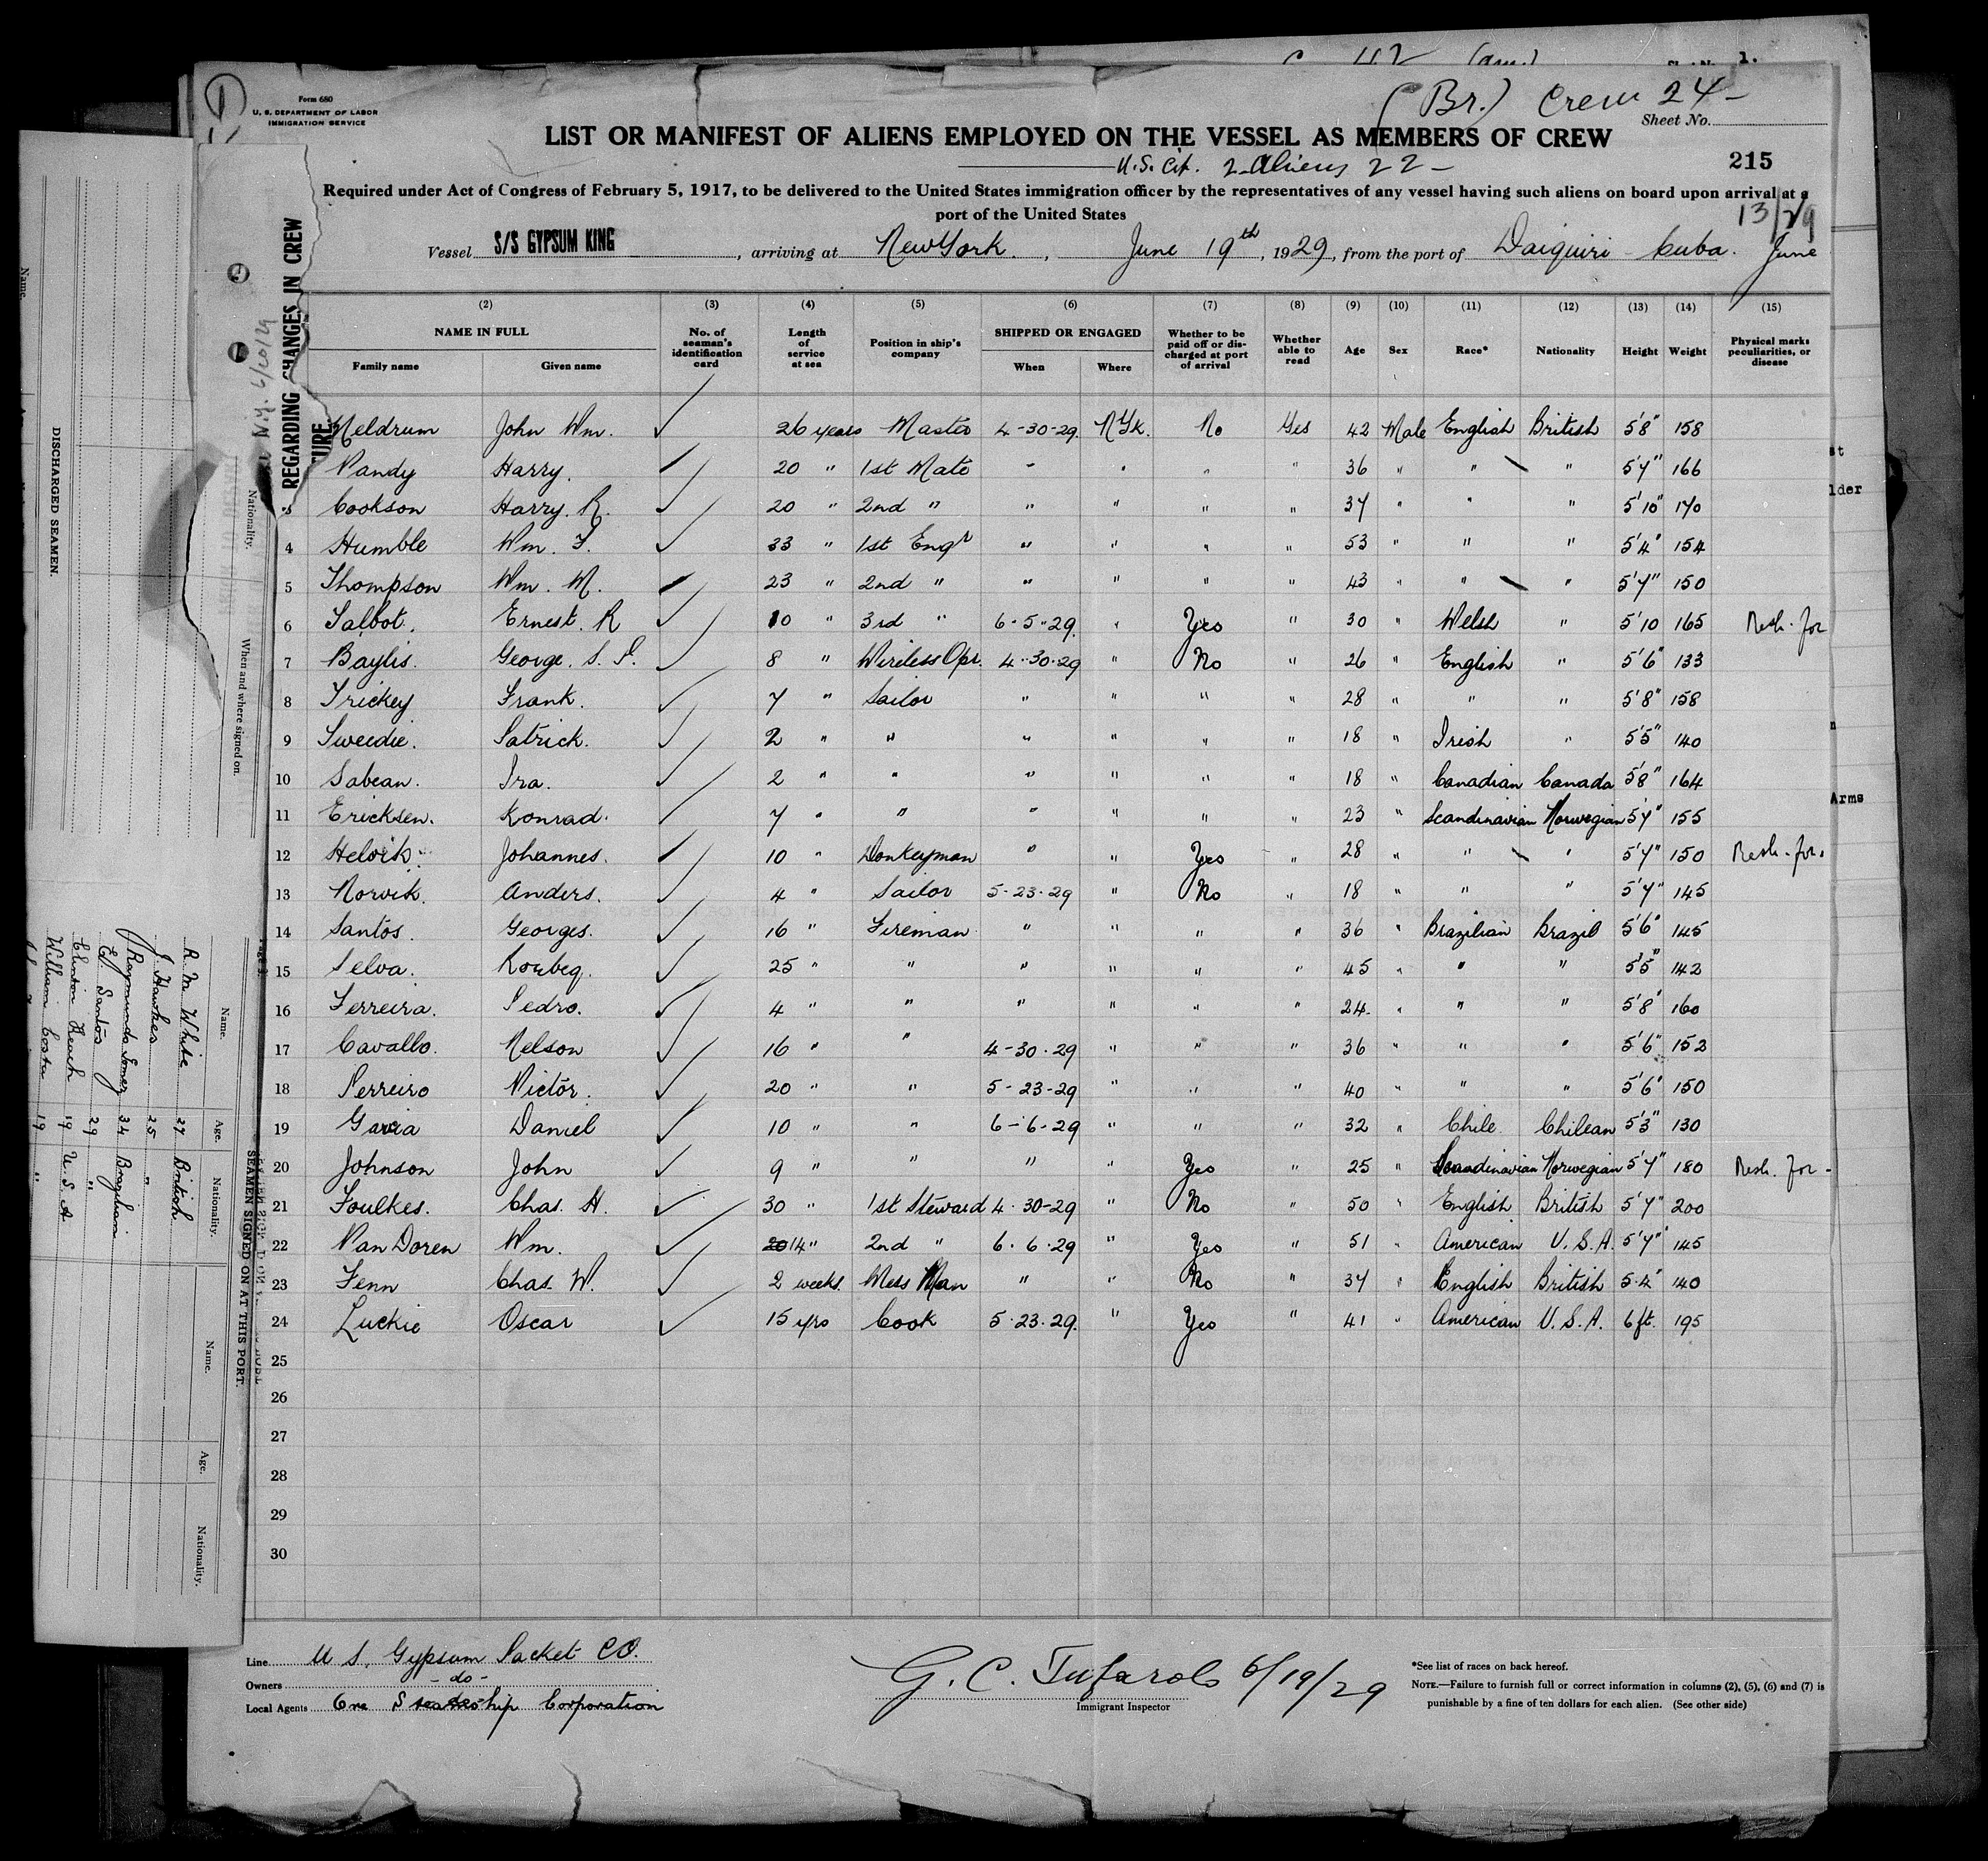 Form 680
U. S. DEPARTMENT OF LABOR
IMMIGRATION SERVICE
1
(Br.) Crew 24 —
Sheet No.
LIST OR MANIFEST OF ALIENS EMPLOYED ON THE VESSEL AS MEMBERS OF CREW
U.S. Cit. 2 Aliens 22 —
215
Required under Act of Congress of February 5, 1917, to be delivered to the United States immigration officer by the representatives of any vessel having such aliens on board upon arrival at a
port of the United States
13/29
Vessel S/S GYPSUM KING, arriving at New York., June 19th, 1929, from the port of Daiquiri Cuba. June
(2) (3) (4) (5) (6) (7) (8) (9) (10) (11) (12) (13) (14) (15)
NAME IN FULL Family name Given name No. of seaman's identification card Length of service at sea Position in ship's company SHIPPED OR ENGAGED When Where Whether to be paid off or discharged at port of arrival Whether able to read Age Sex Race* Nationality Height Weight Physical marks peculiarities, or disease
Meldrum John Wm. 26 years Master 4-30-29. N Yk. No Yes 42 Male English British 5'8" 158
Pandy Harry. 20 " 1st Mate " " " " 36 " " " 5'7" 166
3 Cookson Harry. R. 20 " 2nd " " " " " 37 " " " 5'10" 170
4 Humble Wm. F. 33 " 1st Engr " " " " 53 " " " 5'4" 154
5 Thompson Wm. M. 23 " 2nd " " " " " 43 " " " 5'7" 150
6 Talbot. Ernest. R 10 " 3rd " 6-5-29. " Yes " 30 " Welsh " 5'10 165 Resh. for
7 Baylis. George. S. 8 " Wireless Opr. 4-30-29 " No " 26 " English " 5'6" 133
8 Trickey Frank. 7 " Sailor " " " " 28 " " " 5'8" 158
9 Tweedie. Patrick. 2 " " " " " " 18 " Irish " 5'5" 140
10 Sabean. Ira. 2 " " " " " " 18 " Canadian Canada 5'8" 164
11 Ericksen. Konrad. 7 " " " " " " 23 " Scandinavian Norwegian 5'7" 155
12 Helvik. Johannes. 10 " Donkeyman " " Yes " 28 " " " 5'7" 150 Resh. for.
13 Norvik. Anders. 4 " Sailor 5-23-29 " No " 18 " " " 5'7" 145
14 Santos. Georges. 16 " Fireman " " " " 36 " Brazilian Brazil 5'6" 145
15 Selva. 25 " " " " " " 45 " " " 5'5" 142
16 Ferreira. Pedro. 4 " " " " " " 24. " " " 5'8" 160
17 Cavallo. Nelson 16 " " 4-30-29 " " " 36 " " " 5'6" 152
18 Perreiro Victor. 20 " " 5-23-29 " " " 40 " " " 5'6" 150
19 Garcia Daniel 10 " " 6-6-29 " " " 32 " Chile Chilean 5'3" 130
20 Johnson John 9 " " " " Yes " 25 " Scandinavian Norwegian 5'7" 180 Resh. for -
21 Foulkes. Chas. H. 30 " 1st Steward 4-30-29 " No " 50 " English British 5'7" 200
22 Van Doren Wm. 20 14 " 2nd " 6-6-29 " Yes " 51 " American U.S.A. 5'7" 145
23 Fenn Chas. W. 2 weeks. Mess Man " " No " 37 " English British 5.4" 140
24 Luckie Oscar 15 yrs Cook 5.23.29. " Yes " 41 " American U.S.A. 6 ft. 195
25
26
27
28
29
30
Line U S. Gypsum Packet Co.
Owners - do -
Local Agents Ore Steamship Corporation
6/19/29
Immigrant Inspector
*See list of races on back hereof.
NOTE.—Failure to furnish full or correct information in columns (2), (5), (6) and (7) is
punishable by a fine of ten dollars for each alien. (See other side)
REGARDING CHANGES IN CREW
DISCHARGED SEAMEN.
Name.
Nationality.
When and where signed on.
SEAMEN SIGNED ON AT THIS PORT.
Name. Age. Nationality. Name. Age. Nationality.
R. M. White 27 British
J. Hawkes 25 "
Raymundo 34 Brazilian
E. Santos 29 "
Clinton 19 U.S.A
William Costa 19 "
lder
Arms